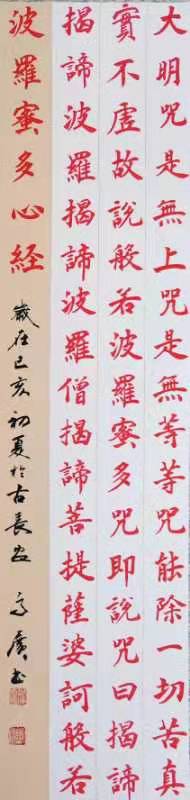 大明咒是無上咒是無等等咒能除一切苦真
實不虛故說般若波羅蜜多咒即說咒曰揭諦
揭諦波羅揭諦波羅僧揭諦菩提薩婆訶般若
波羅蜜多心经
歲在己亥初夏於古長安 高廣书